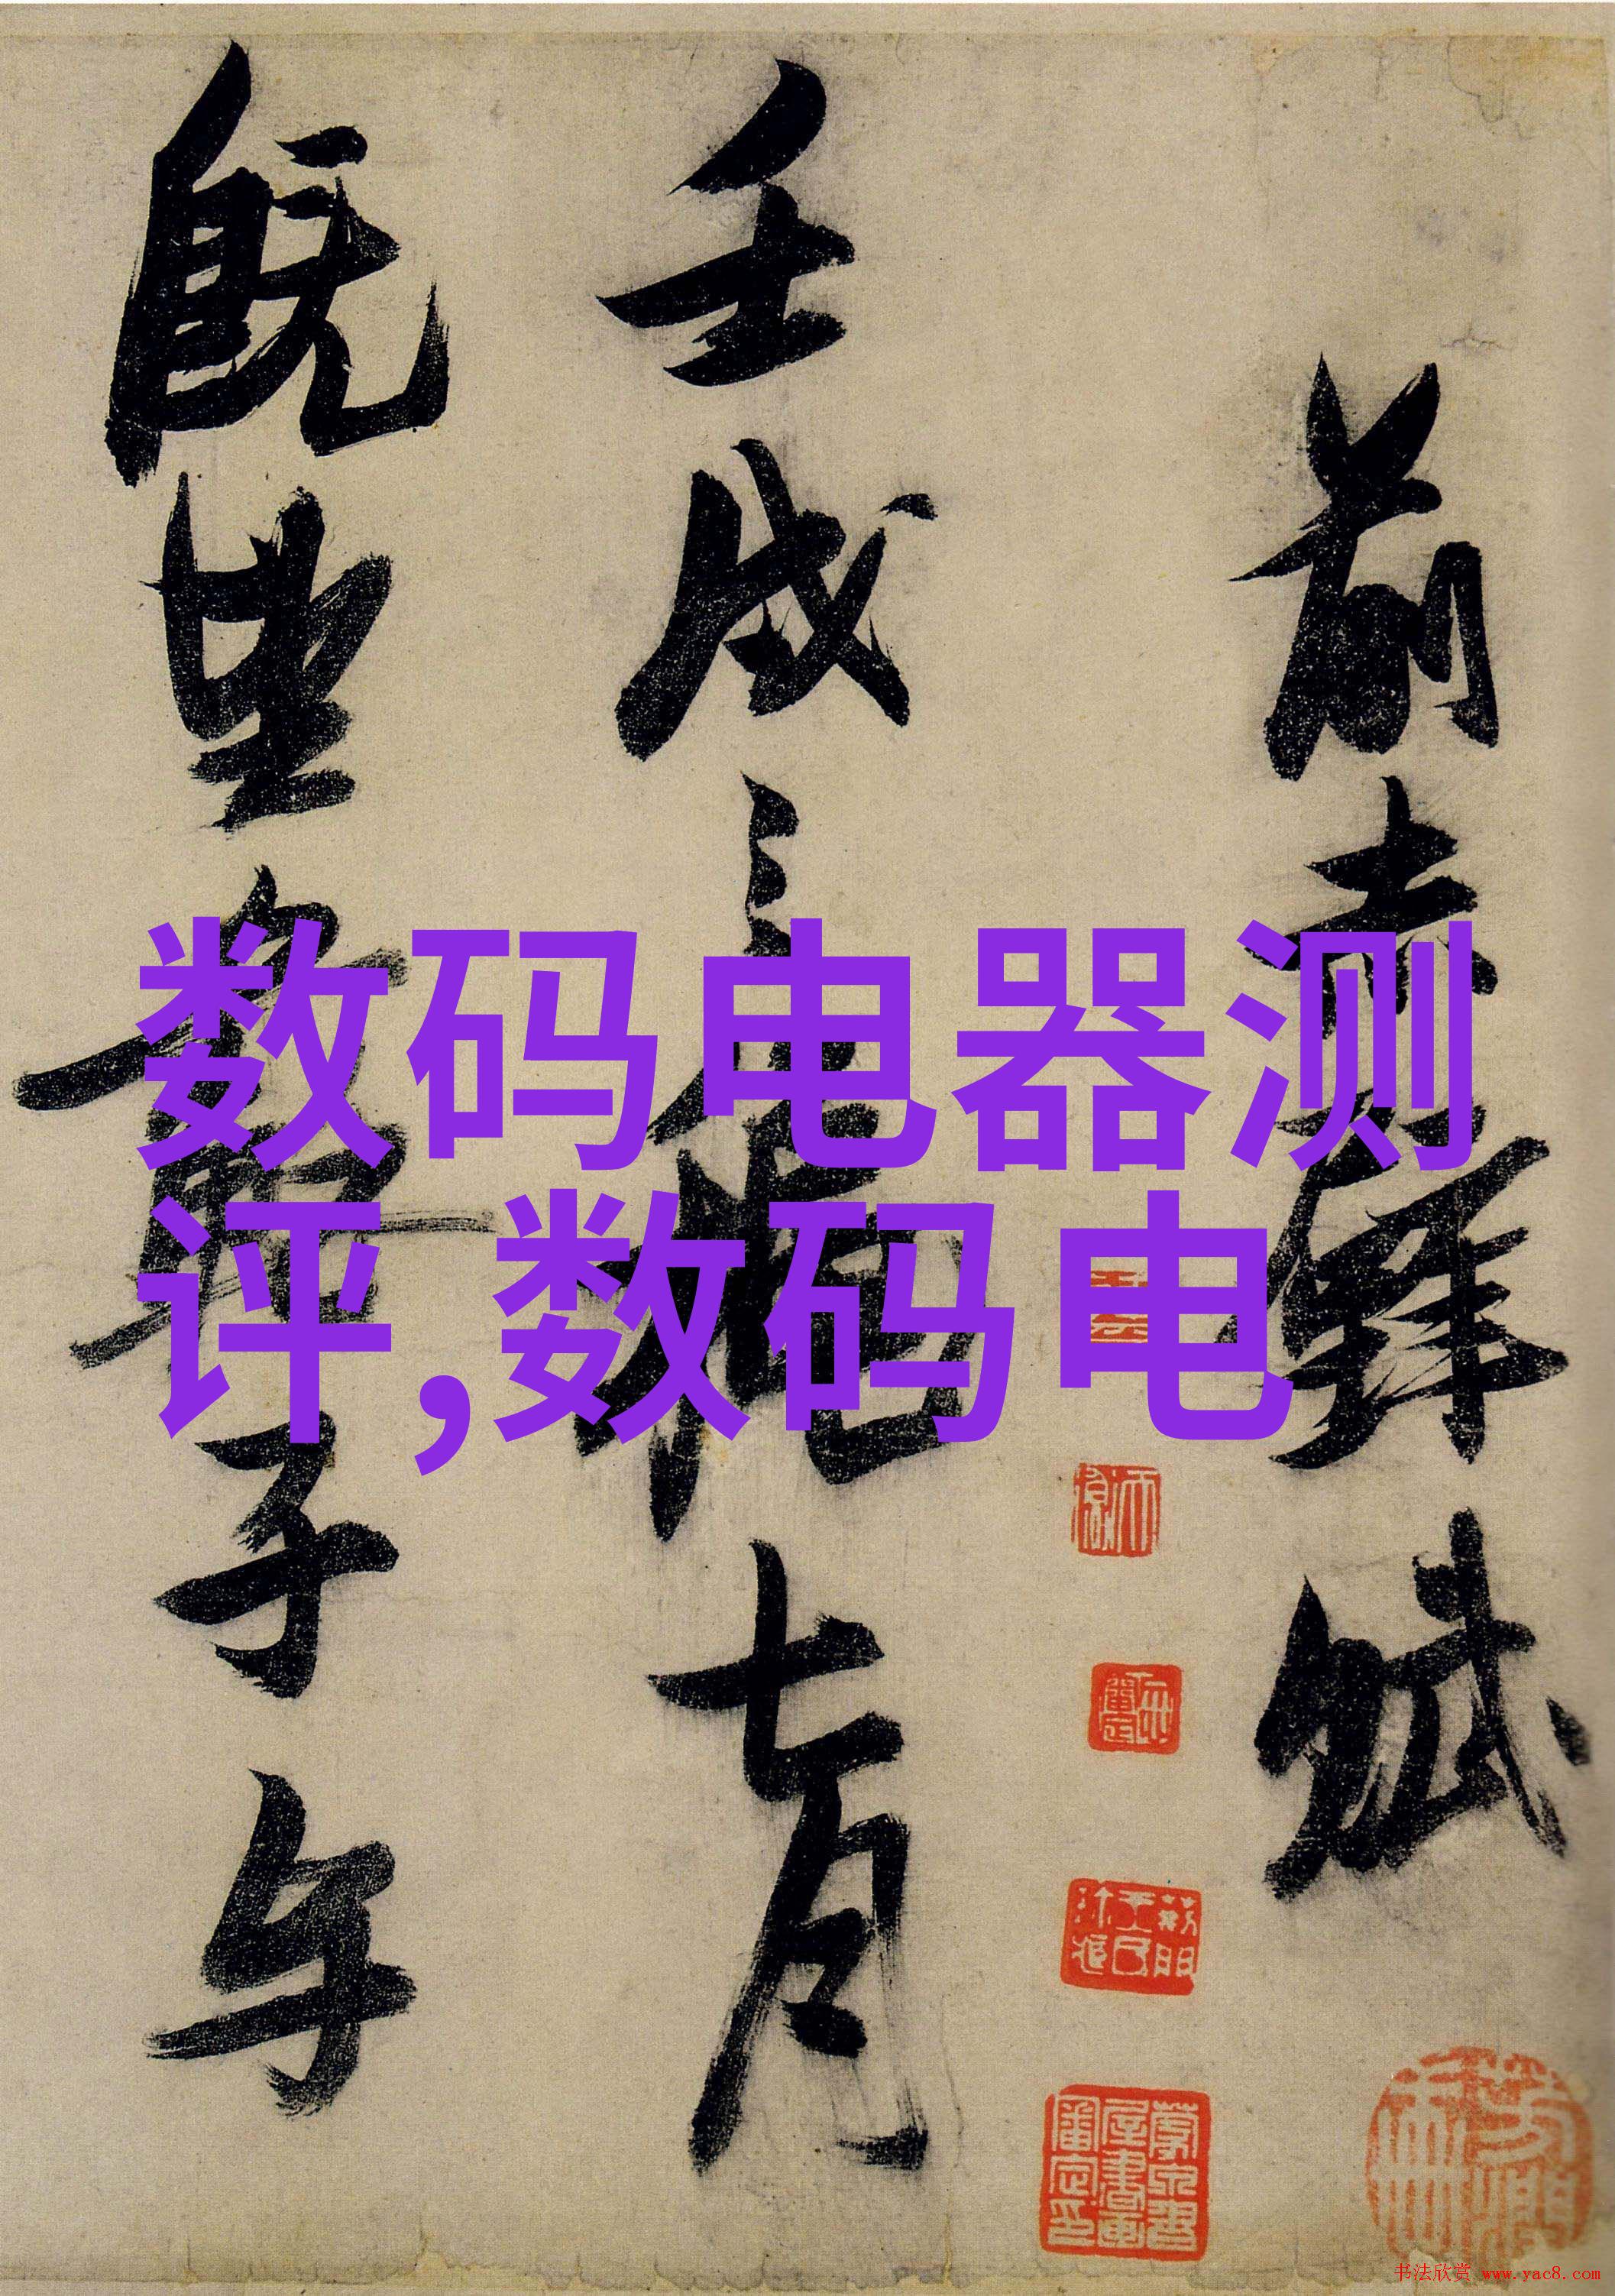 前赤壁賦
壬戌之秋七月
既望蘇子与
数码电器测
评,数码电
书法欣赏 www.yac8.com